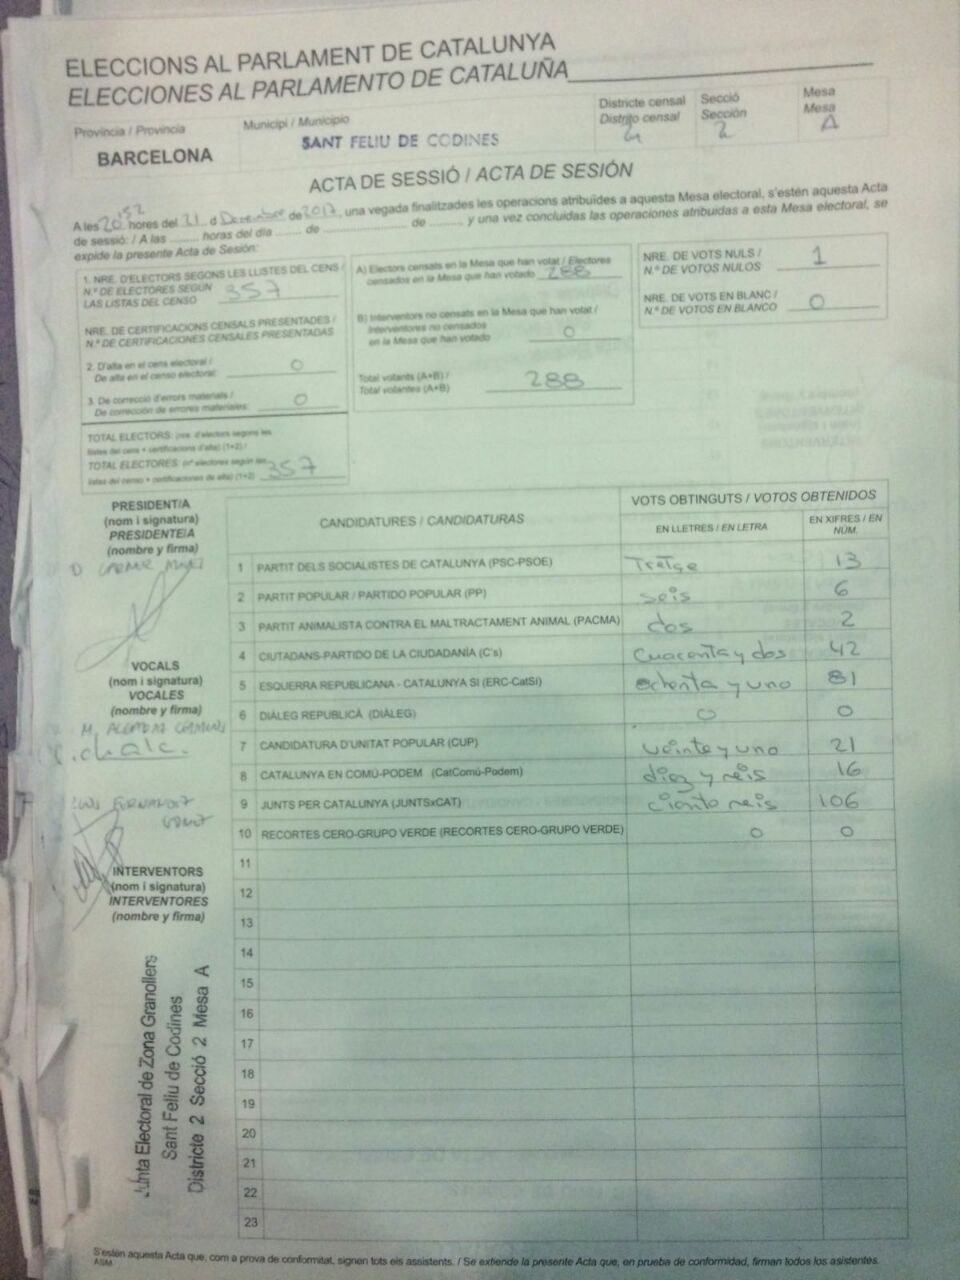 ELECCIONS AL PARLAMENT DE CATALUNYA
ELECCIONES AL PARLAMENTO DE CATALUÑA
Província / Provincia
BARCELONA
Municipi / Municipio
SANT FELIU DE CODINES
Districte censal
Distrito censal
2
Secció
Sección
2
Mesa
Mesa
A
ACTA DE SESSIÓ / ACTA DE SESIÓN
A les 20'52 hores del 21 d Dezembre de 2017, una vegada finalitzades les operacions atribuïdes a aquesta Mesa electoral, s'estén aquesta Acta
de sessió: / A las ......... horas del día ......... de ......... de ........., y una vez concluidas las operaciones atribuidas a esta Mesa electoral, se
expide la presente Acta de Sesión:
1. NRE. D'ELECTORS SEGONS LES LLISTES DEL CENS /
N.º DE ELECTORES SEGÚN
LAS LISTAS DEL CENSO 357
NRE. DE CERTIFICACIONS CENSALS PRESENTADES /
N.º DE CERTIFICACIONES CENSALES PRESENTADAS
2. D'alta en el cens electoral /
De alta en el censo electoral: 0
3. De correcció d'errors materials /
De corrección de errores materiales: 0
TOTAL ELECTORS: (nre. d'electors segons les
llistes del cens + certificacions d'alta) (1+2) /
TOTAL ELECTORES: (nº electores según las
listas del censo + certificaciones de alta) (1+2) 357
A) Electors censats en la Mesa que han votat / Electores
censados en la Mesa que han votado 288
B) Interventors no censats en la Mesa que han votat /
Interventores no censados
en la Mesa que han votado 0
Total votants (A+B) /
Total votantes (A+B) 288
NRE. DE VOTS NULS /
N.º DE VOTOS NULOS 1
NRE. DE VOTS EN BLANC /
N.º DE VOTOS EN BLANCO 0
PRESIDENT/A
(nom i signatura)
PRESIDENTE/A
(nombre y firma)
VOCALS
(nom i signatura)
VOCALES
(nombre y firma)
INTERVENTORS
(nom i signatura)
INTERVENTORES
(nombre y firma)
Junta Electoral de Zona Granollers
Sant Feliu de Codines
Districte 2 Secció 2 Mesa A
CANDIDATURES / CANDIDATURAS
VOTS OBTINGUTS / VOTOS OBTENIDOS
EN LLETRES / EN LETRA
EN XIFRES / EN
NÚM.
1 PARTIT DELS SOCIALISTES DE CATALUNYA (PSC-PSOE) Tretge 13
2 PARTIT POPULAR / PARTIDO POPULAR (PP) seis 6
3 PARTIT ANIMALISTA CONTRA EL MALTRACTAMENT ANIMAL (PACMA) dos 2
4 CIUTADANS-PARTIDO DE LA CIUDADANÍA (C's) cuarenta y dos 42
5 ESQUERRA REPUBLICANA - CATALUNYA SÍ (ERC-CatSí) ochenta y uno 81
6 DIÀLEG REPUBLICÀ (DIÀLEG) 0 0
7 CANDIDATURA D'UNITAT POPULAR (CUP) veinte y uno 21
8 CATALUNYA EN COMÚ-PODEM (CatComú-Podem) diez y seis 16
9 JUNTS PER CATALUNYA (JUNTSxCAT) ciento seis 106
10 RECORTES CERO-GRUPO VERDE (RECORTES CERO-GRUPO VERDE) 0 0
11
12
13
14
15
16
17
18
19
20
21
22
23
S'estén aquesta Acta que, com a prova de conformitat, signen tots els assistents. / Se extiende la presente Acta que, en prueba de conformidad, firman todos los asistentes.